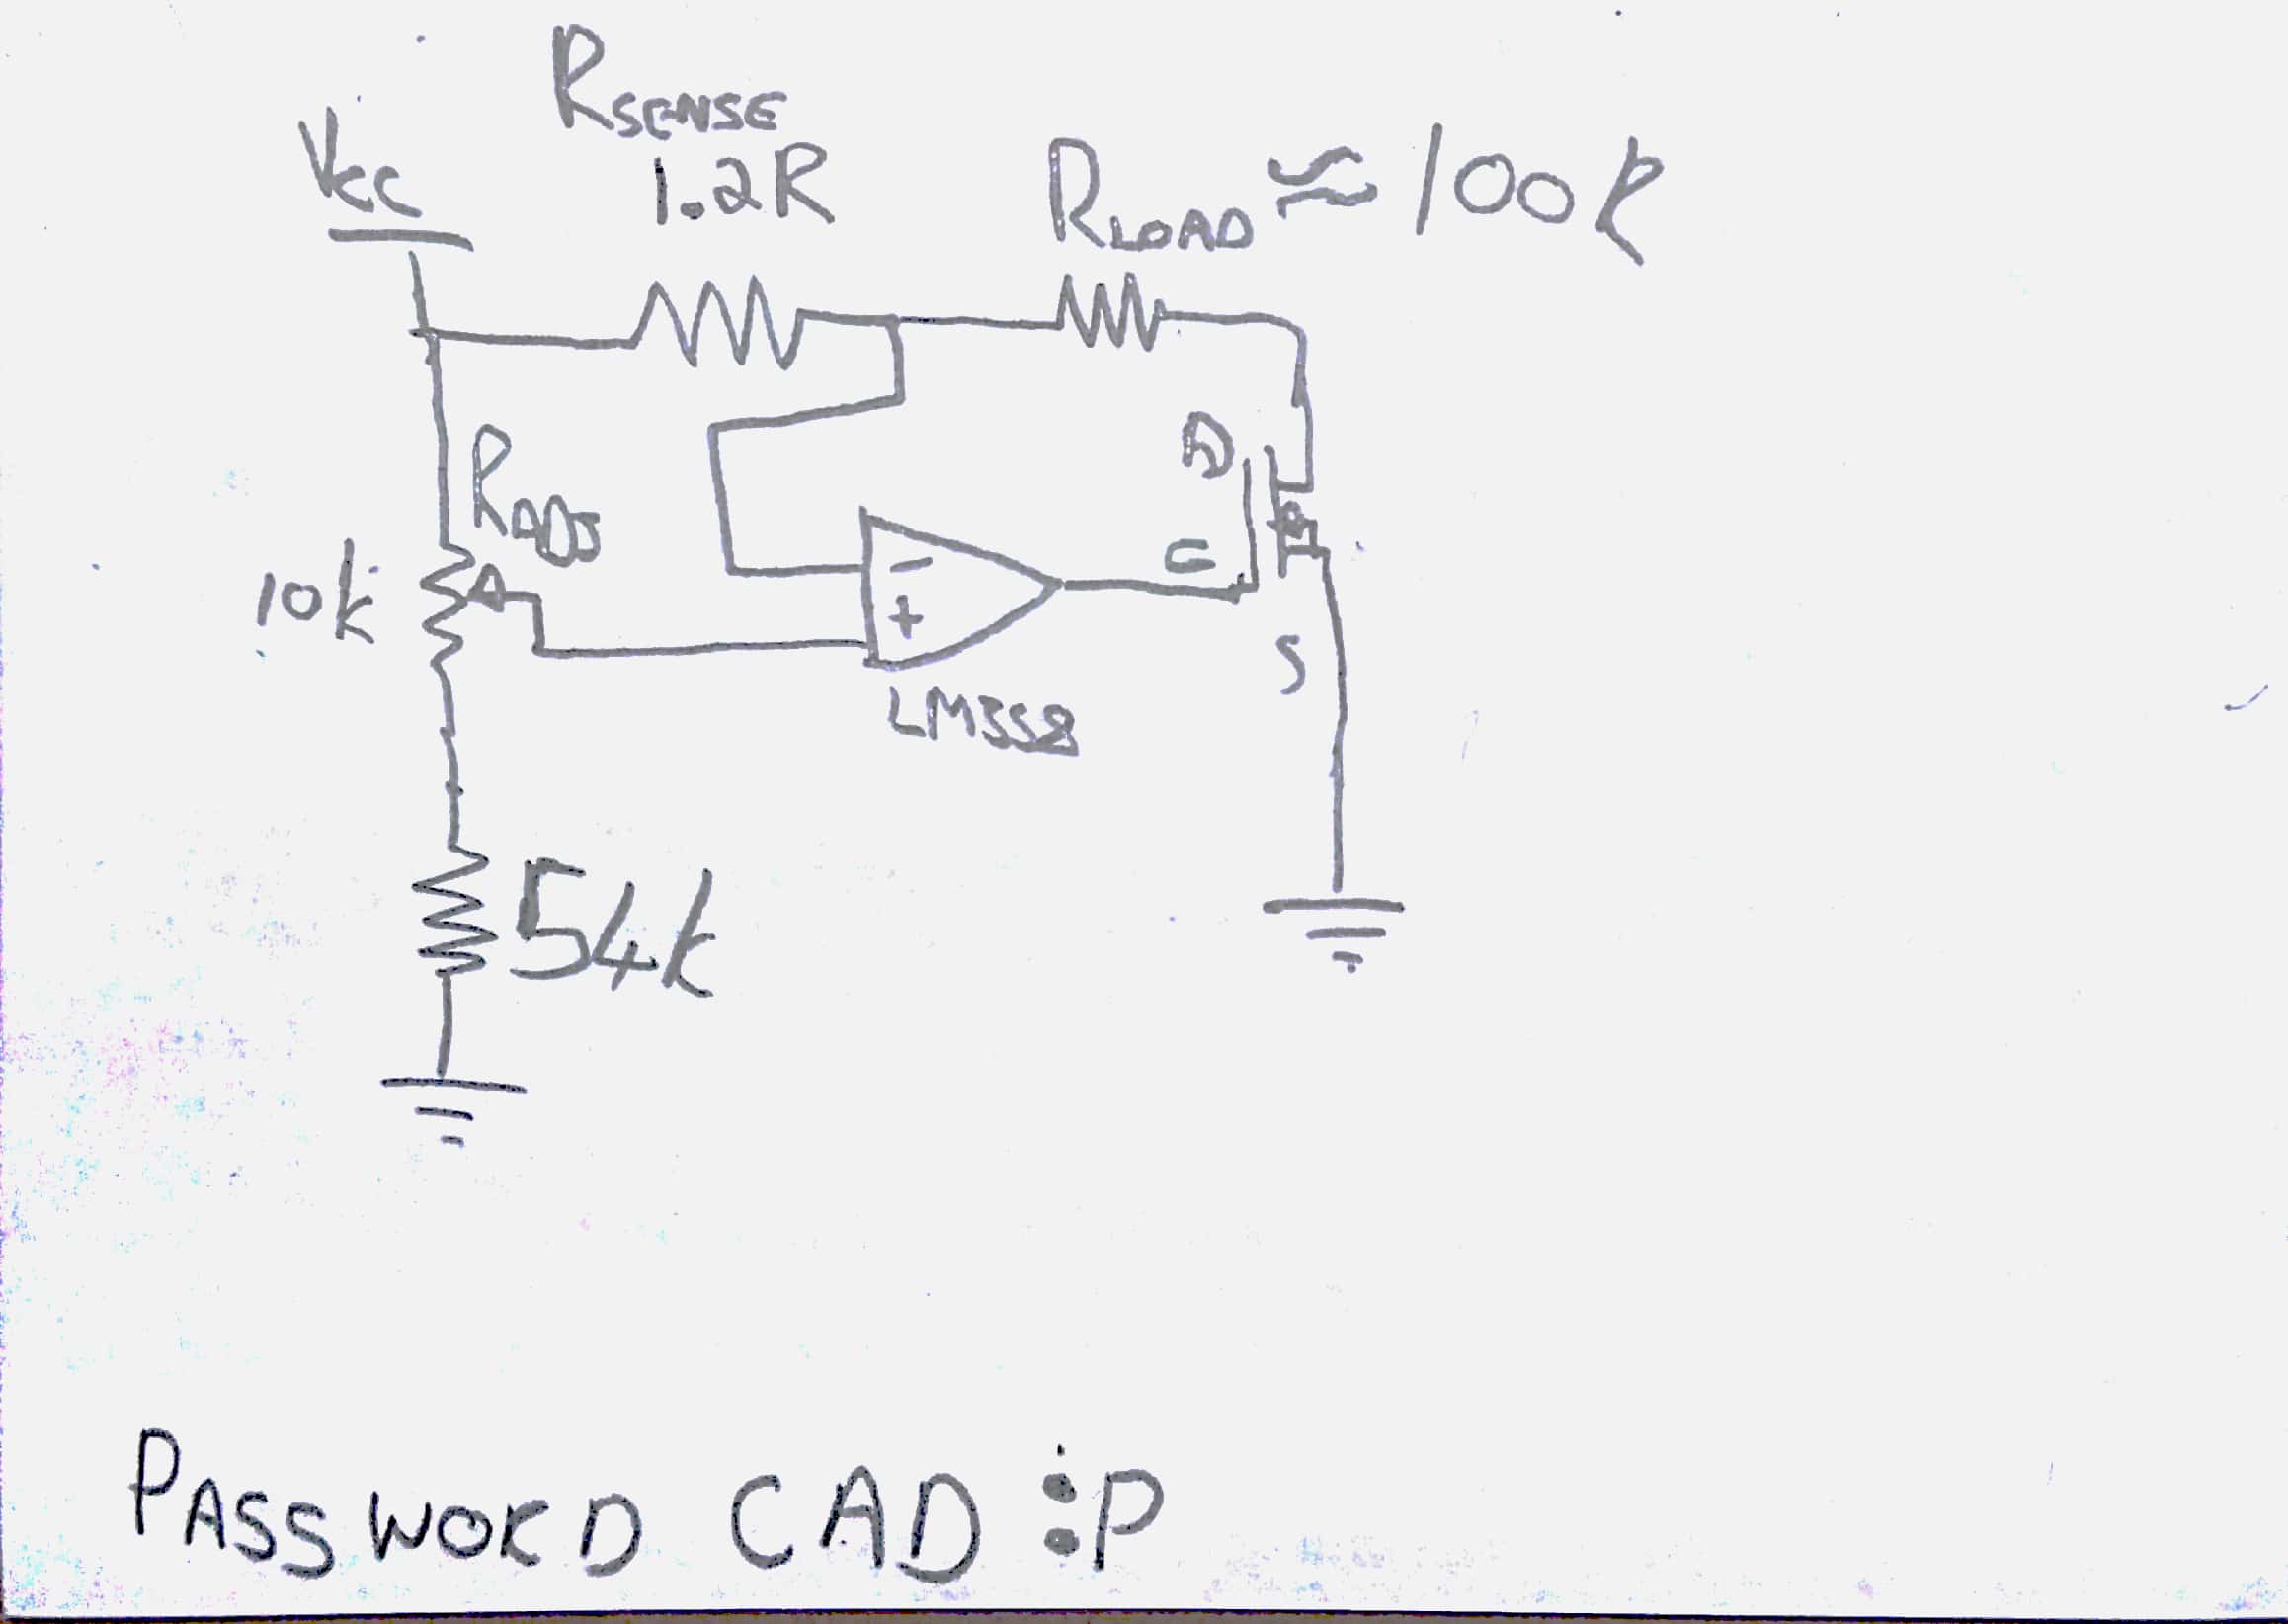 RSENSE
1.2R
VCC
RLOAD ≈ 100k
RADJ
10k
D
G
S
-
+
LM358
54k
PASSWORD CAD :P